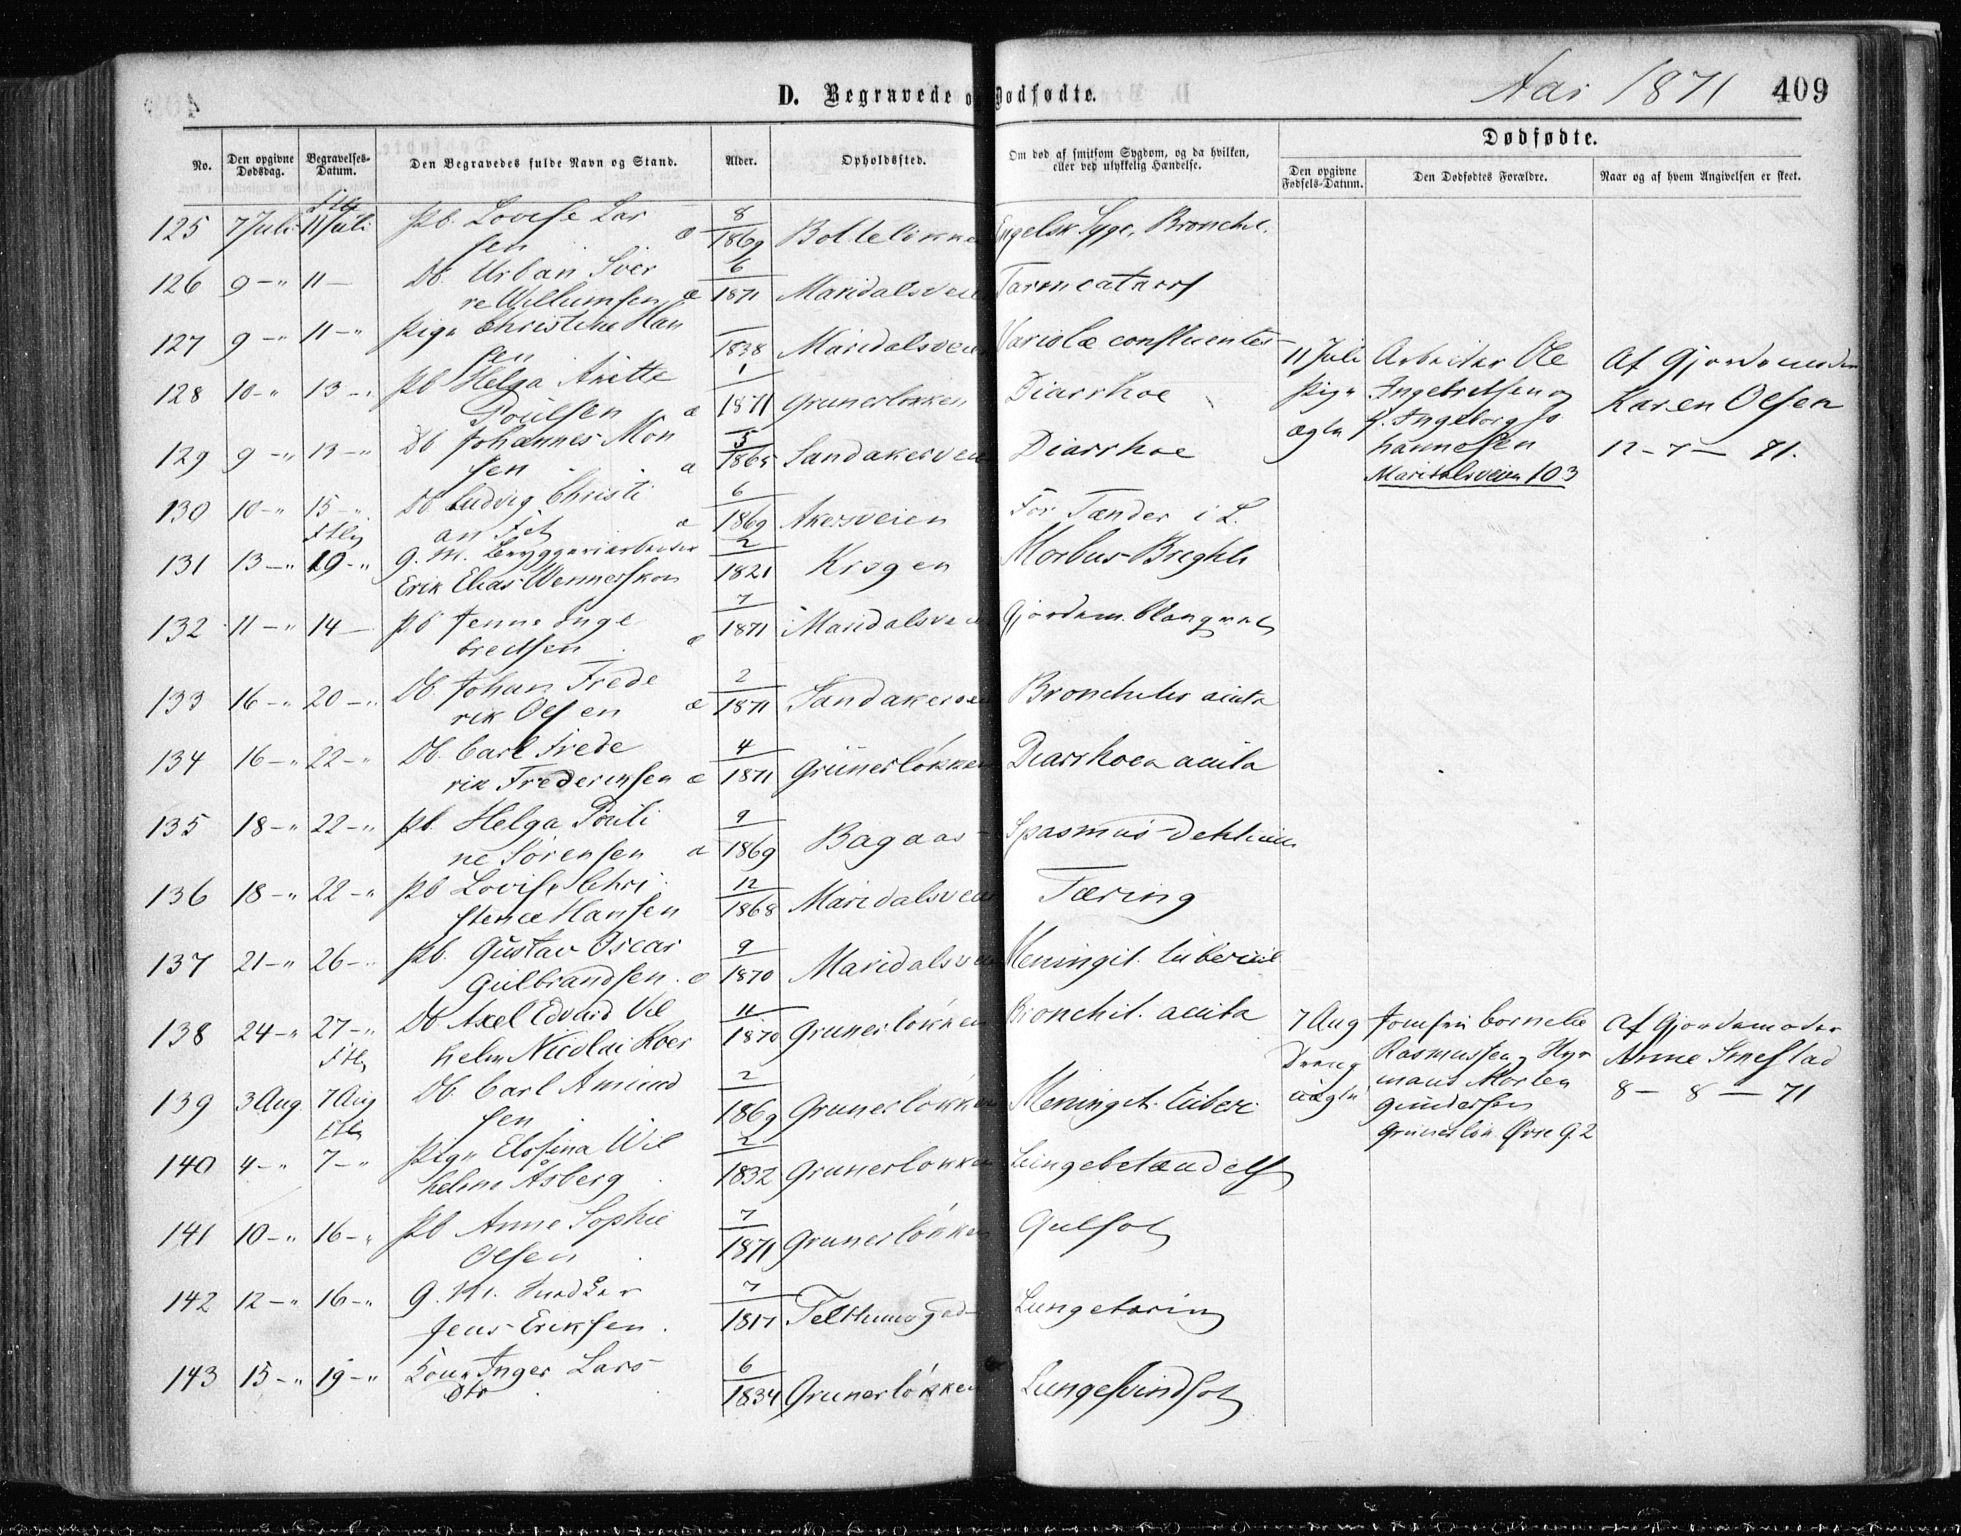 D. Begravede o Dødfødte.
Aar 1871
409
No.
Den opgivne Dødsdag.
Begravelses-Datum.
Den Begravedes fulde Navn og Stand.
Alder.
Opholdssted.
Om død af smitsom Sygdom, og da hvilken, eller ved ulykkelig Hændelse.
Dødfødte.
Den opgivne Fødsels-Datum.
Den Dødfødtes Forældre.
Naar og af hvem Angivelsen er skeet.
125 7 Juli 11 Juli Pb. Lovise Lar
sen æ 8/1869 Bolteløkken Engelsk Syge, Bronchit.
126 9 -"- 11 - Db. Urban Sver
re Willumsen æ 6/1871 Maridalsveien Tarmcatarrh
127 9 -"- 11 -"- Pige Christine Han
sen 1838 Maridalsveien Variolæ confluentes
128 10 -"- 13 -"- Pb Helga Anette
Poulsen æ 1/1871 Grunerløkken Diarrhoe
129 9 -"- 13 -"- Db Johannes Mon
sen æ 5/1865 Sandakerveien Diarrhoe
130 10 -"- 15 -"- Db Ludvig Christi
an æ 6/1869 Akersveien For Tænder i L.
131 13 -"- 19 -"- G. M. Bryggeriarbeider
Erik Elias Wennerskon 2/1821 Krogen Morbus Brighti
132 11 -"- 14 - Pb Jenne Inge
bretsen æ 7/1871 Maridalsveien Gjordem.
133 16 -"- 20 -"- Db Johan Frede
rik Olsen æ 2/1871 Sandakerveien Bronchitis acuta
134 16 -"- 22 -"- Db. Carl Frede
rik Frederiksen æ 4/1871 Grünerløkken Diarrhoea acuta
135 18 -"- 22 -"- Pb. Helga Pouli
ne Sørensen æ 9/1869 Bagaas Spasmus
136 18 -"- 22 -"- Pb Lovise Chri
stence Hansen 12/1868 Maridalsveien Tæring
137 21 -"- 26 -"- Pb. Gustav Oscar
Gulbrandsen æ 9/1870 Maridalsveien Meningit. tubercul
138 24 -"- 27 -"- Db Axel Edvard Vil
helm Nicolai Roer 11/1870 Grunerløkken Bronchit. acuta
139 3 Aug 7 Aug Db. Carl Amund
sen 2/1869 Grunerløkken Meningit. tuber.
140 4 -"- 7 -"- Pige Elosina Wil
helmine Åsberg 2/1832 Grunerløkken Lungebetændelse
141 10 -"- 16 -"- Pb Anne Sophie
Olsen 7/1871 Grunerløkken Gulsot
142 12 -"- 16 -"- G. M.
Jens Eriksen 7/1817 Telthusgad Lungetæring
143 15 -"- 19 -"- Kone Inger Lars
Dtr 6/1834 Grunerløkken Lungesvindsot
11 Juli
Pige
ægte
Arbeider Ole
Ingebretsen og
H. Ingeborg Jo
hannesen
Maridalsveien 103
Af Gjordemoder
Karen Olsen
12 - 7 - 71.
7 Aug
Dreng
uægte
Jomfru Cornelie
Rasmussen og Hyr
mand Morten
Gundersen
Grunerløk. Øvre G. 2
Af Gjordemoder
Anne Smestad
8 - 8 - 71